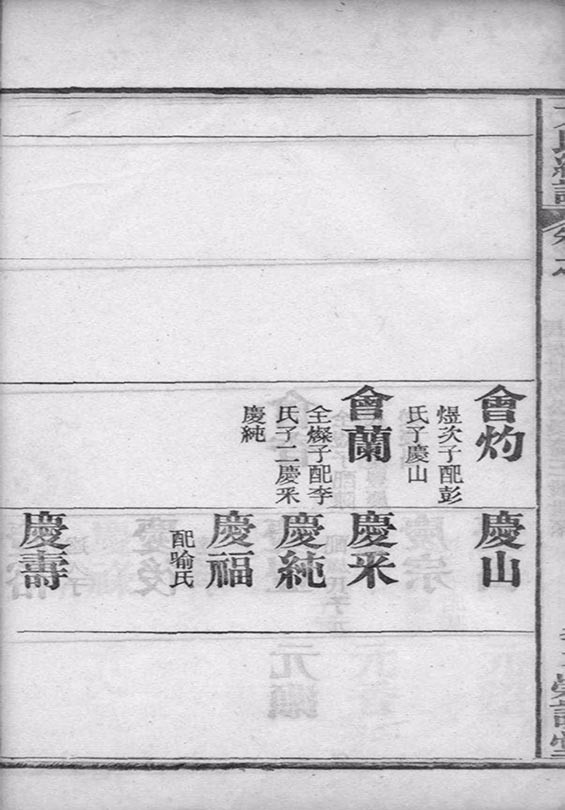 會灼
煜次子配彭
氏子慶山
會蘭
全燦子配李
氏子二慶釆
慶純
慶山
慶釆
慶純
慶福
配喻氏
慶壽